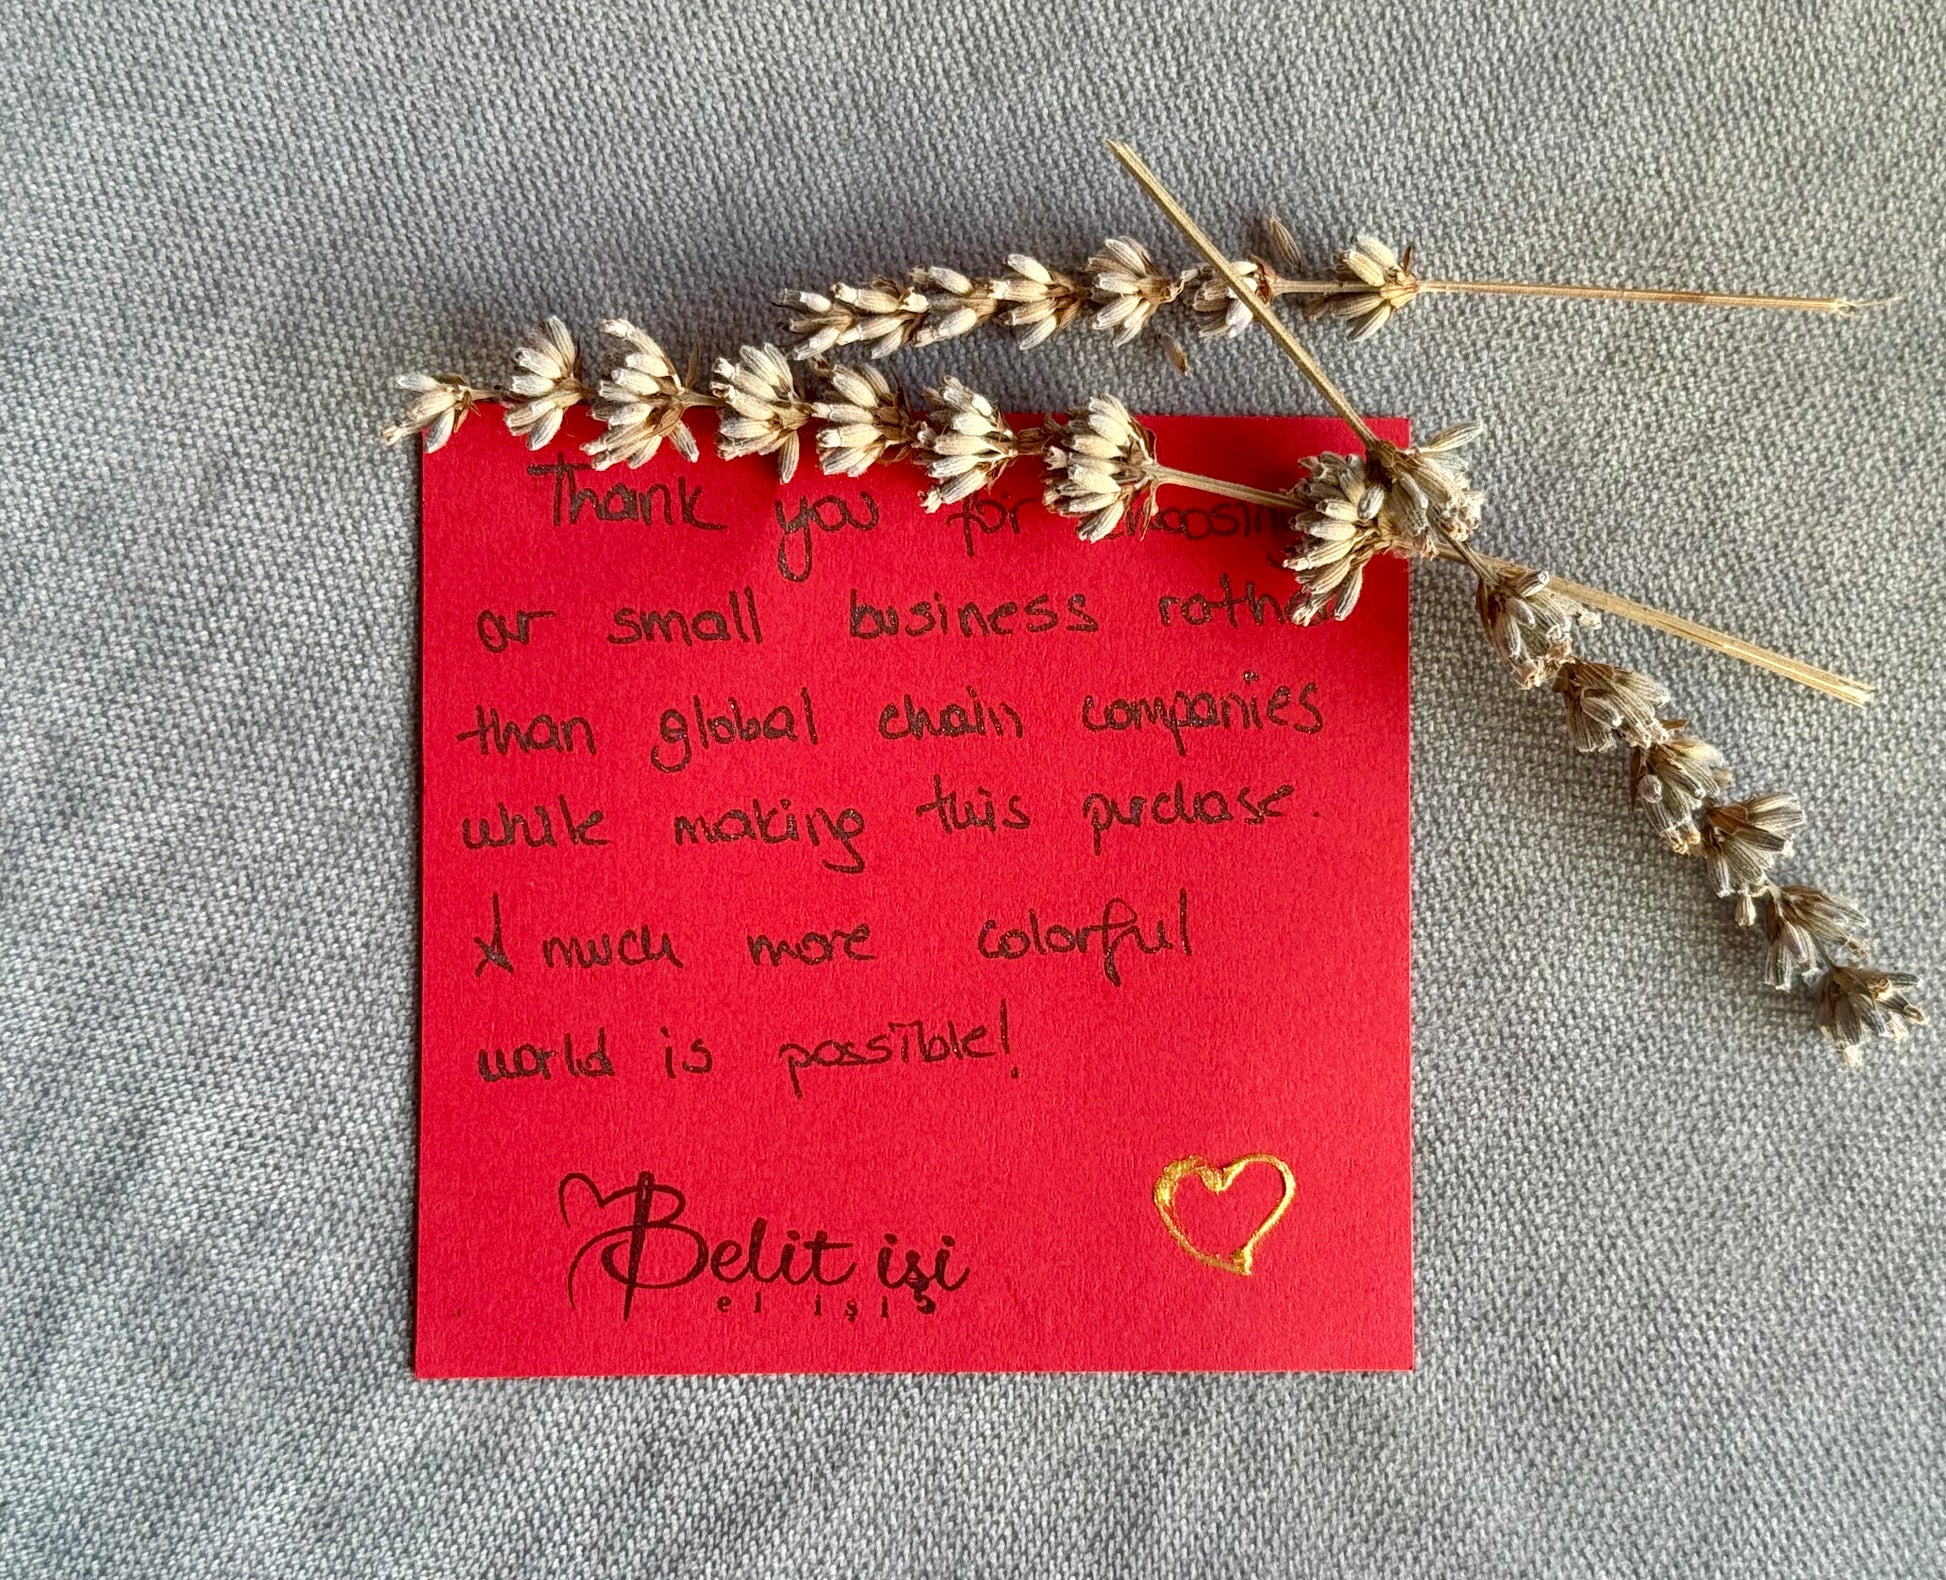 Thank you for choosing
our small business rather
than global chain companies
while making this purchase.
A much more colorful
world is possible!
Belit işi
el işi